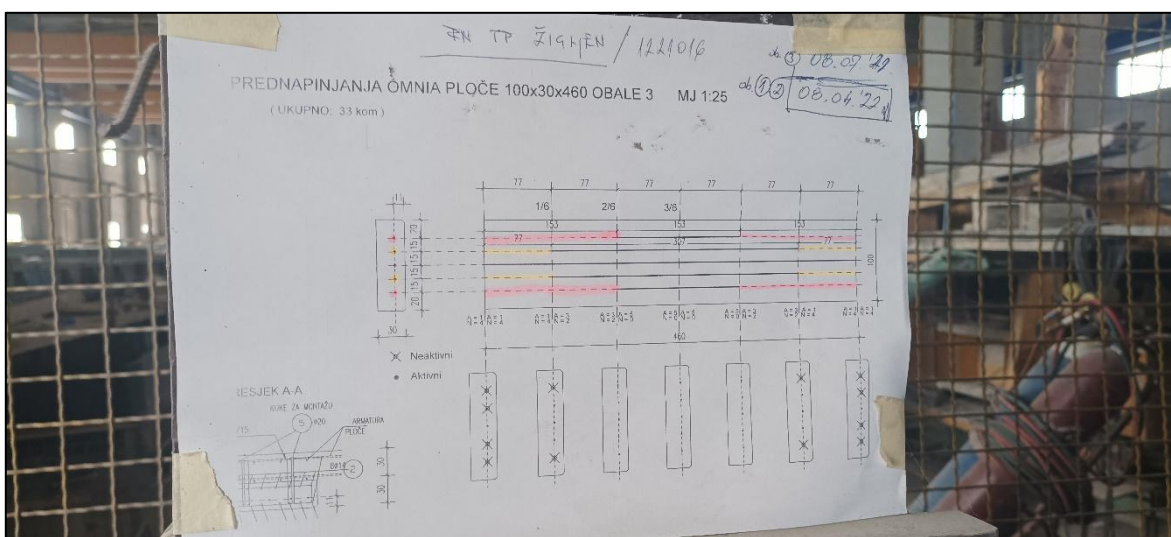 TP / 1221016
ob. ③ 08.07.'22.
ob. ①② 08.04.'22.
PREDNAPINJANJA OMNIA PLOČE 100x30x460 OBALE 3 MJ 1:25
( UKUPNO: 33 kom )
77 77 77 77 77 77
1/6 2/6 3/6
153 153 153
77 307 77
20 15 15 15 15 20
100
30
460
Neaktivni
Aktivni
RESJEK A-A
KUKE ZA MONTAŽU
5 ø20
ARMATURA
PLOČE
2
30
30